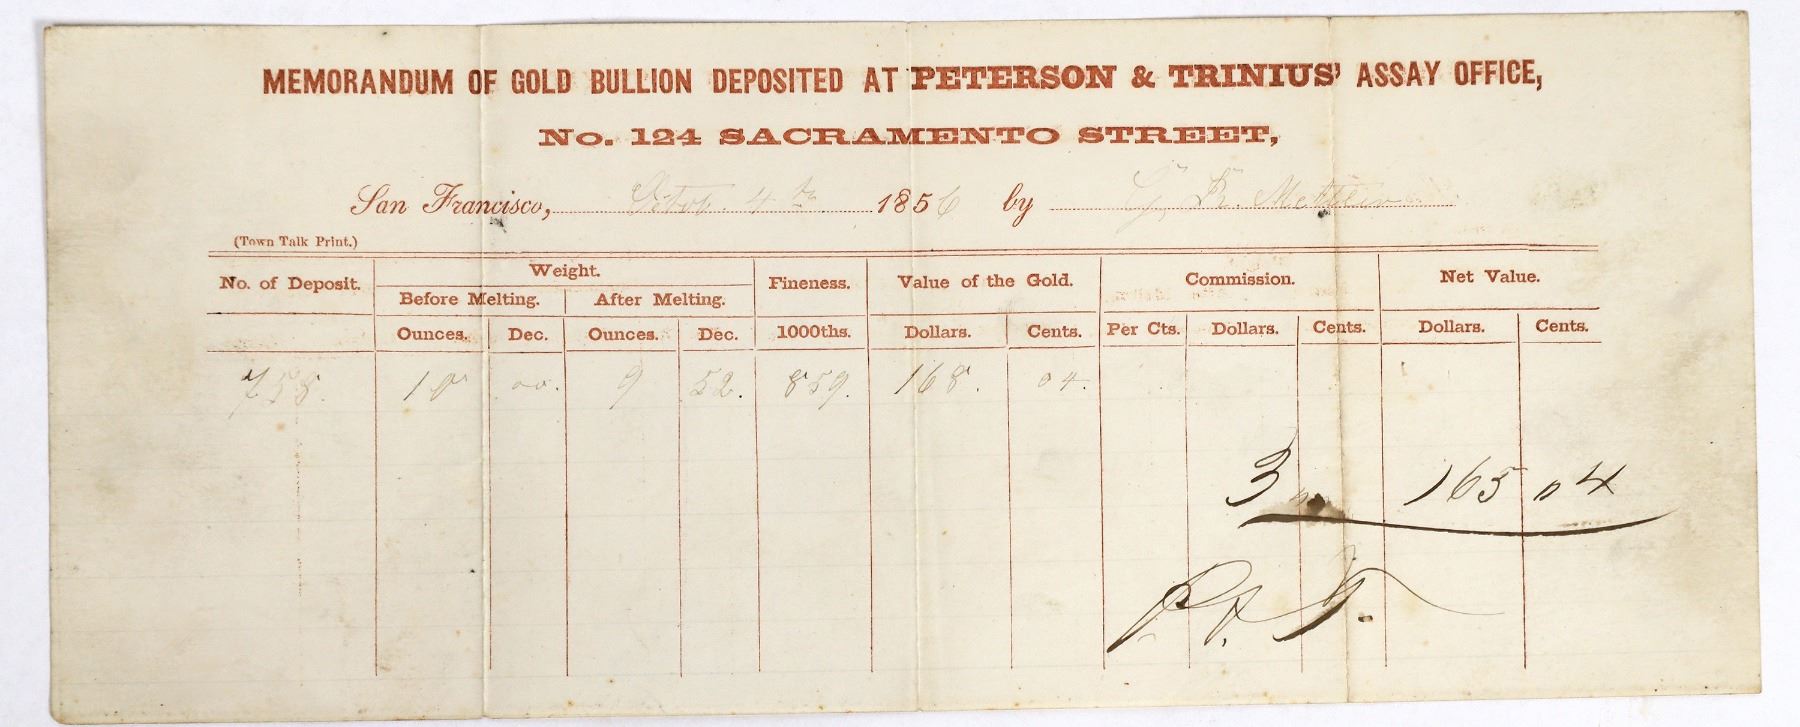 MEMORANDUM OF GOLD BULLION DEPOSITED AT PETERSON & TRINIUS' ASSAY OFFICE,
No. 124 SACRAMENTO STREET,
San Francisco, Octob. 4th 1856 by G. R.
(Town Talk Print.)
No. of Deposit. Weight. Fineness. Value of the Gold. Commission. Net Value.
Before Melting. After Melting.
Ounces. Dec. Ounces. Dec. 1000ths. Dollars. Cents. Per Cts. Dollars. Cents. Dollars. Cents.
758. 10 00. 9 52. 859. 168. 04.
3 165 04
P. & T.